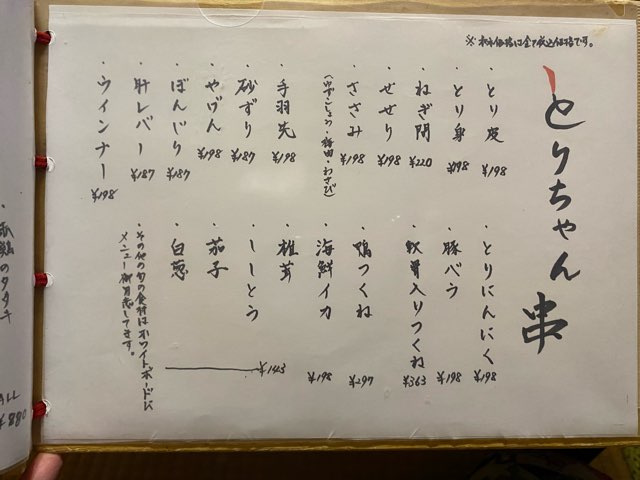 ※ 表示価格は全て税込価格です。
とりちゃん 串
・とり皮 ¥198
・とり身 ¥198
・ねぎ間 ¥220
・せせり ¥198
・ささみ ¥198
(ゆずこしょう・梅肉・わさび)
・手羽先 ¥198
・砂ずり ¥187
・やげん ¥198
・ぼんじり ¥187
・肝レバー ¥187
・ウインナー ¥198
・とりにんにく ¥198
・豚バラ ¥198
・軟骨入りつくね ¥363
・鴨つくね ¥297
・海鮮イカ ¥198
・椎茸
・ししとう
・茄子
・白葱
¥143
・その他の旬の食材はホワイトボードに
メニュー御用意してます。
鶏のタタキ
ALL
¥880